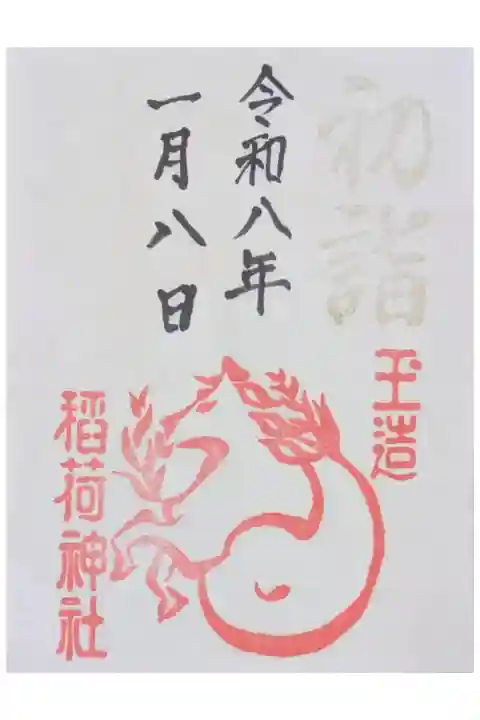 初詣
令和八年
一月八日
玉造
稲荷神社